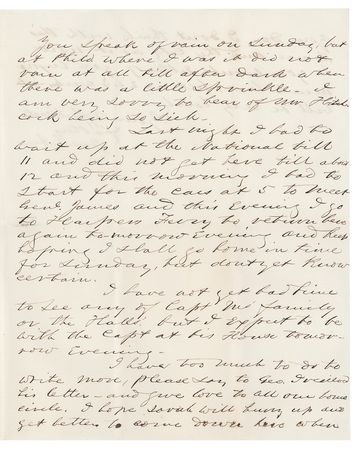 You speak of rain on Sunday, but
at Phild where I was it did not
rain at all till after dark when
there was a little sprinkle. I
am very sorry to hear of Mr Hitch
cock being so sick.
Last night I had to
wait up at the National till
11 and did not get here till about
12 and this morning I had to
start for the cars at 5 to meet
Genl James and this Evening I go
to Harpers Ferry to return here
again tomorrow Evening and
hoping I shall go home in time
for Sunday, but dont yet know
certain.
I have not yet had time
to see any of Capt Ms family
or the Halls but I expect to be
with the Capt at his House tomor-
row Evening-
I have too much to do to
write more, please say to Geo. I received
his letter - and give love to all our home
circle. I hope Sarah will hurry up and
get better to come down here when